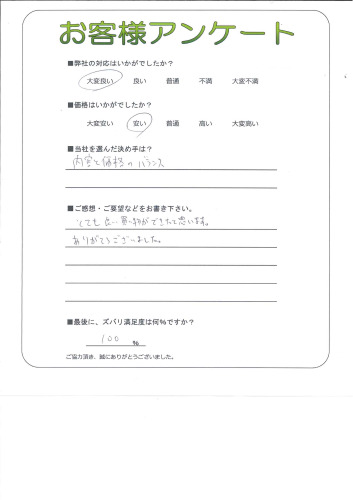 お客様アンケート
■弊社の対応はいかがでしたか？
大変良い 良い 普通 不満 大変不満
■価格はいかがでしたか？
大変安い 安い 普通 高い 大変高い
■当社を選んだ決め手は？
内容と価格のバランス
■ご感想・ご要望などをお書き下さい。
とても良い買い物ができたと思います。
ありがとうございました。
■最後に、ズバリ満足度は何％ですか？
100 ％
ご協力頂き、誠にありがとうございました。